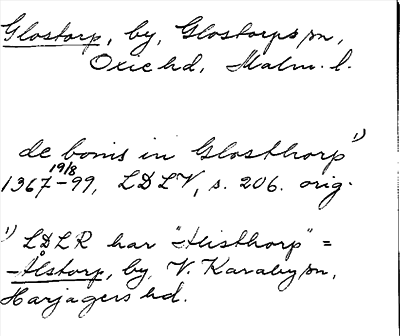 Glostorp, by, Glostorps sn,
Oxie hd, Malm. l.
de bonis in Glosthorp 1)
19/8
1367-99, LDLV, s. 206. orig.
1) LDLR har "Alisthorp" =
-Ålstorp, by, V. Karaby sn,
Harjagers hd.